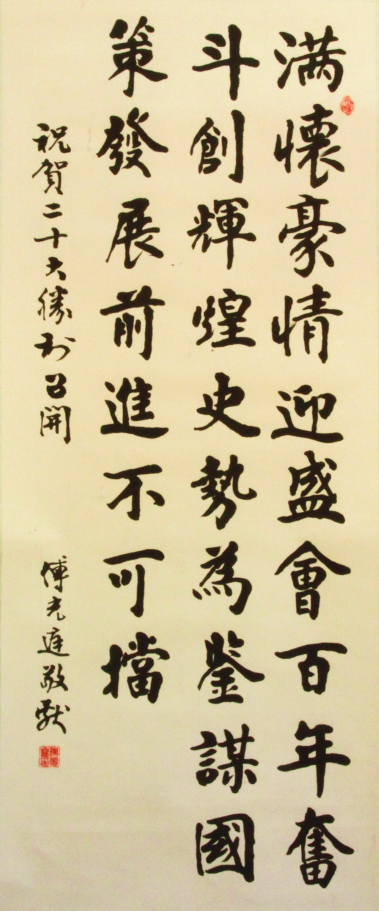 满懷豪情迎盛會百年奮
斗創輝煌史勢為鉴謀國
策發展前進不可擋
祝賀二十大勝利召開
傅光庭敬獻